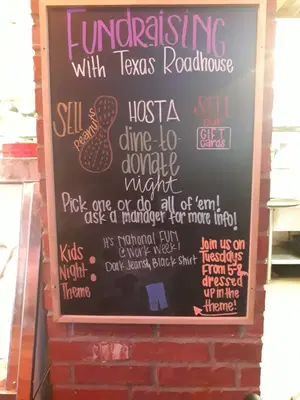 FUNDRAISING
WITH TEXAS ROADHOUSE
SELL
PEANUTS
HOSTA
dine-to-
donate
night
SELL
OUR
GIFT
CARDS
PICK ONE OR DO ALL OF 'EM!
ASK A MANAGER FOR MORE INFO!
KIDS
NIGHT
THEME
IT'S NATIONAL FUN
@ WORK WEEK!
DARK JEANS, BLACK SHIRT
JOIN US ON
TUESDAYS
FROM 5-8PM
DRESSED
UP IN THE
THEME!